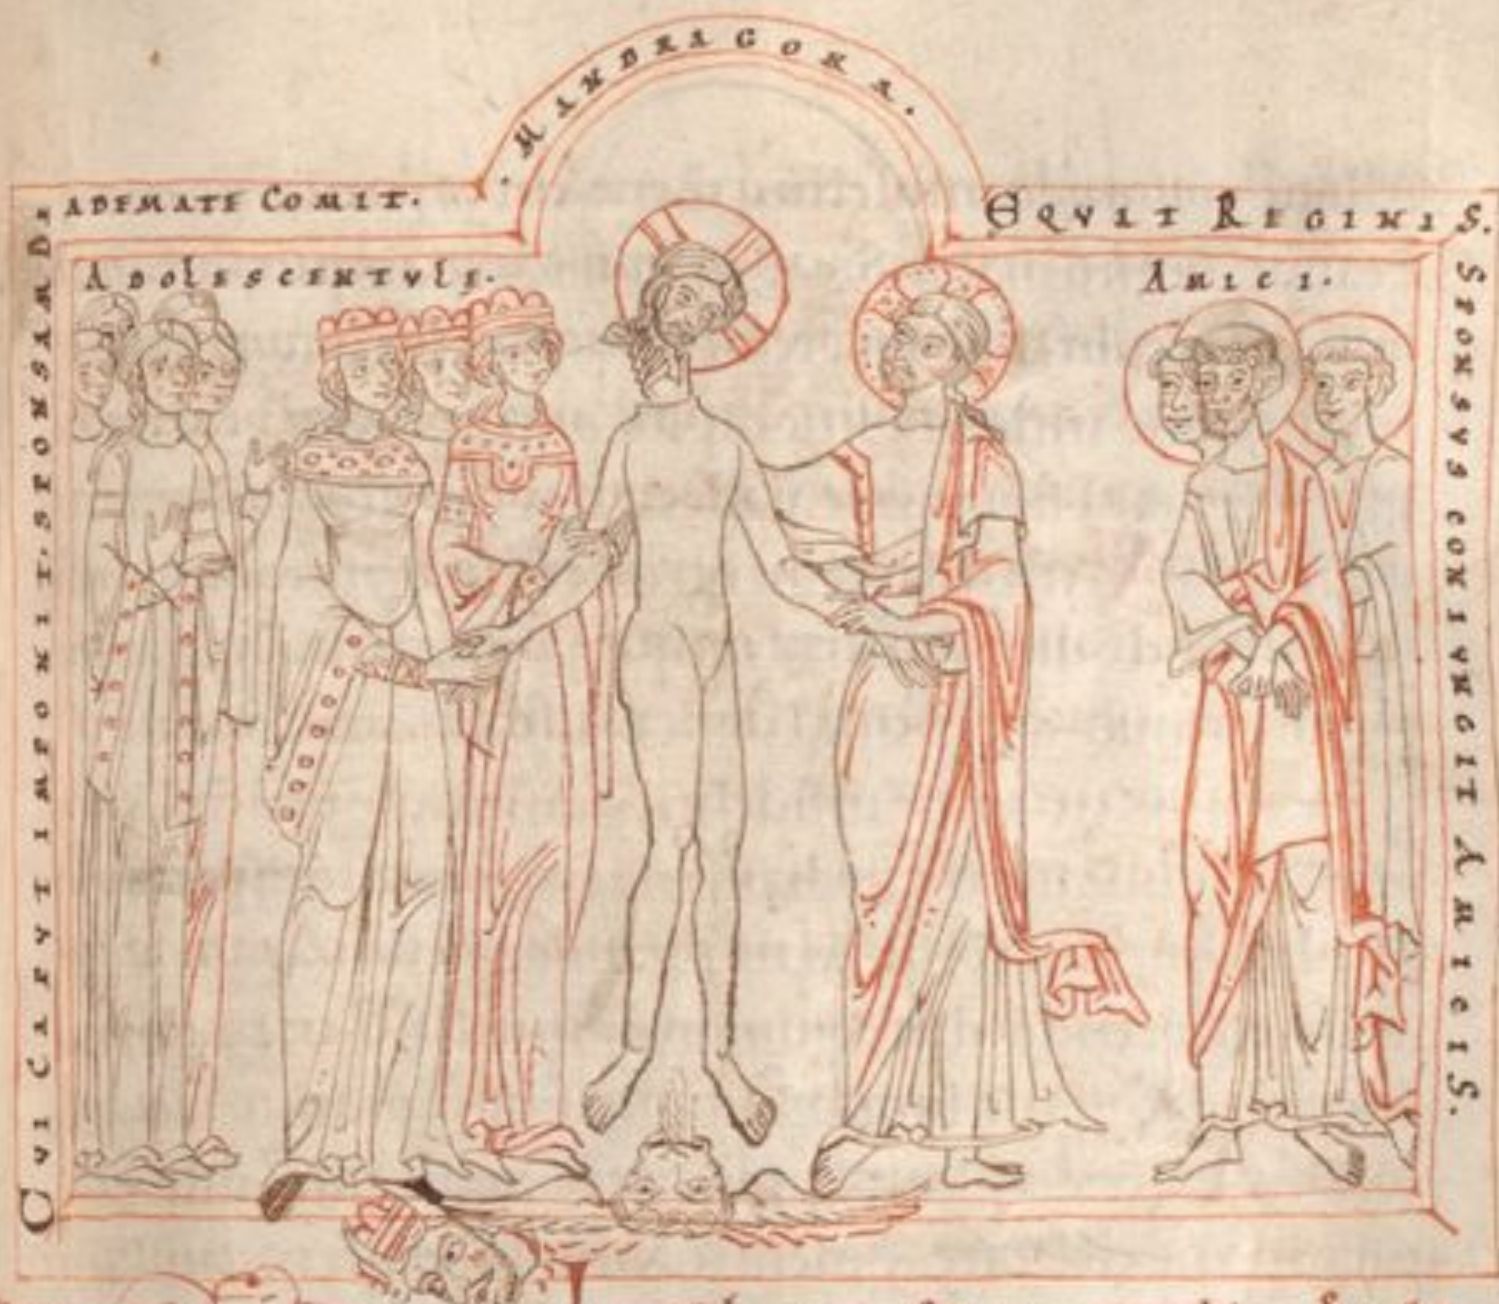 CVI CAPVT IMPONIT. SPONSAM DI
ADEMATE COMIT.
.MANDRAGORA.
EQVIT REGINIS.
SPONSVS CONIVNGIT AMICIS.
ADOLESCENTVLE.
AMICI.